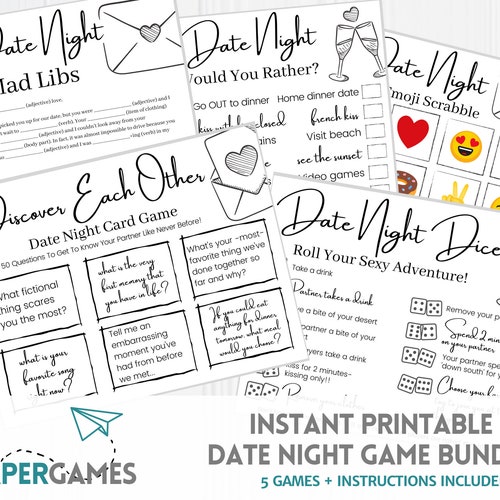 Date Night
Mad Libs
picked you up for our date, but you were (adjective) and I
(verb). Your (item of clothing)
(adjective) and I couldn't look away from your
(body part). In fact, it was almost impossible to drive because you
(adjective) and I was (verb) in my
(adjective) love.
Date Night
Would You Rather?
Go OUT to dinner Home dinner date
french kiss
Visit beach
see the sunset
Video games
Date Night
Emoji Scrabble
Discover Each Other
Date Night Card Game
50 Questions To Get To Know Your Partner Like Never Before!
What fictional
thing scares
you the most?
what is the very
first memory that
you have in life?
What's your -most-
favorite thing we've
done together so
far and why?
what is your
favorite song
right now?
Tell me an
embarrassing
moment you've
had from before
we met...
If you could eat
anything for dinner
tomorrow, what meal
would you choose?
Date Night Dice
Roll Your Sexy Adventure!
Take a drink
Partner takes a drink
a bite of your desert
partner a bite of your
takes a drink
kiss for 2 minutes-
kissing only!!
Remove your
Spend 2 min
on your partner
Your partner spe
'down south' for y
Choose your
PERGAMES
INSTANT PRINTABLE
DATE NIGHT GAME BUND
5 GAMES + INSTRUCTIONS INCLUDE